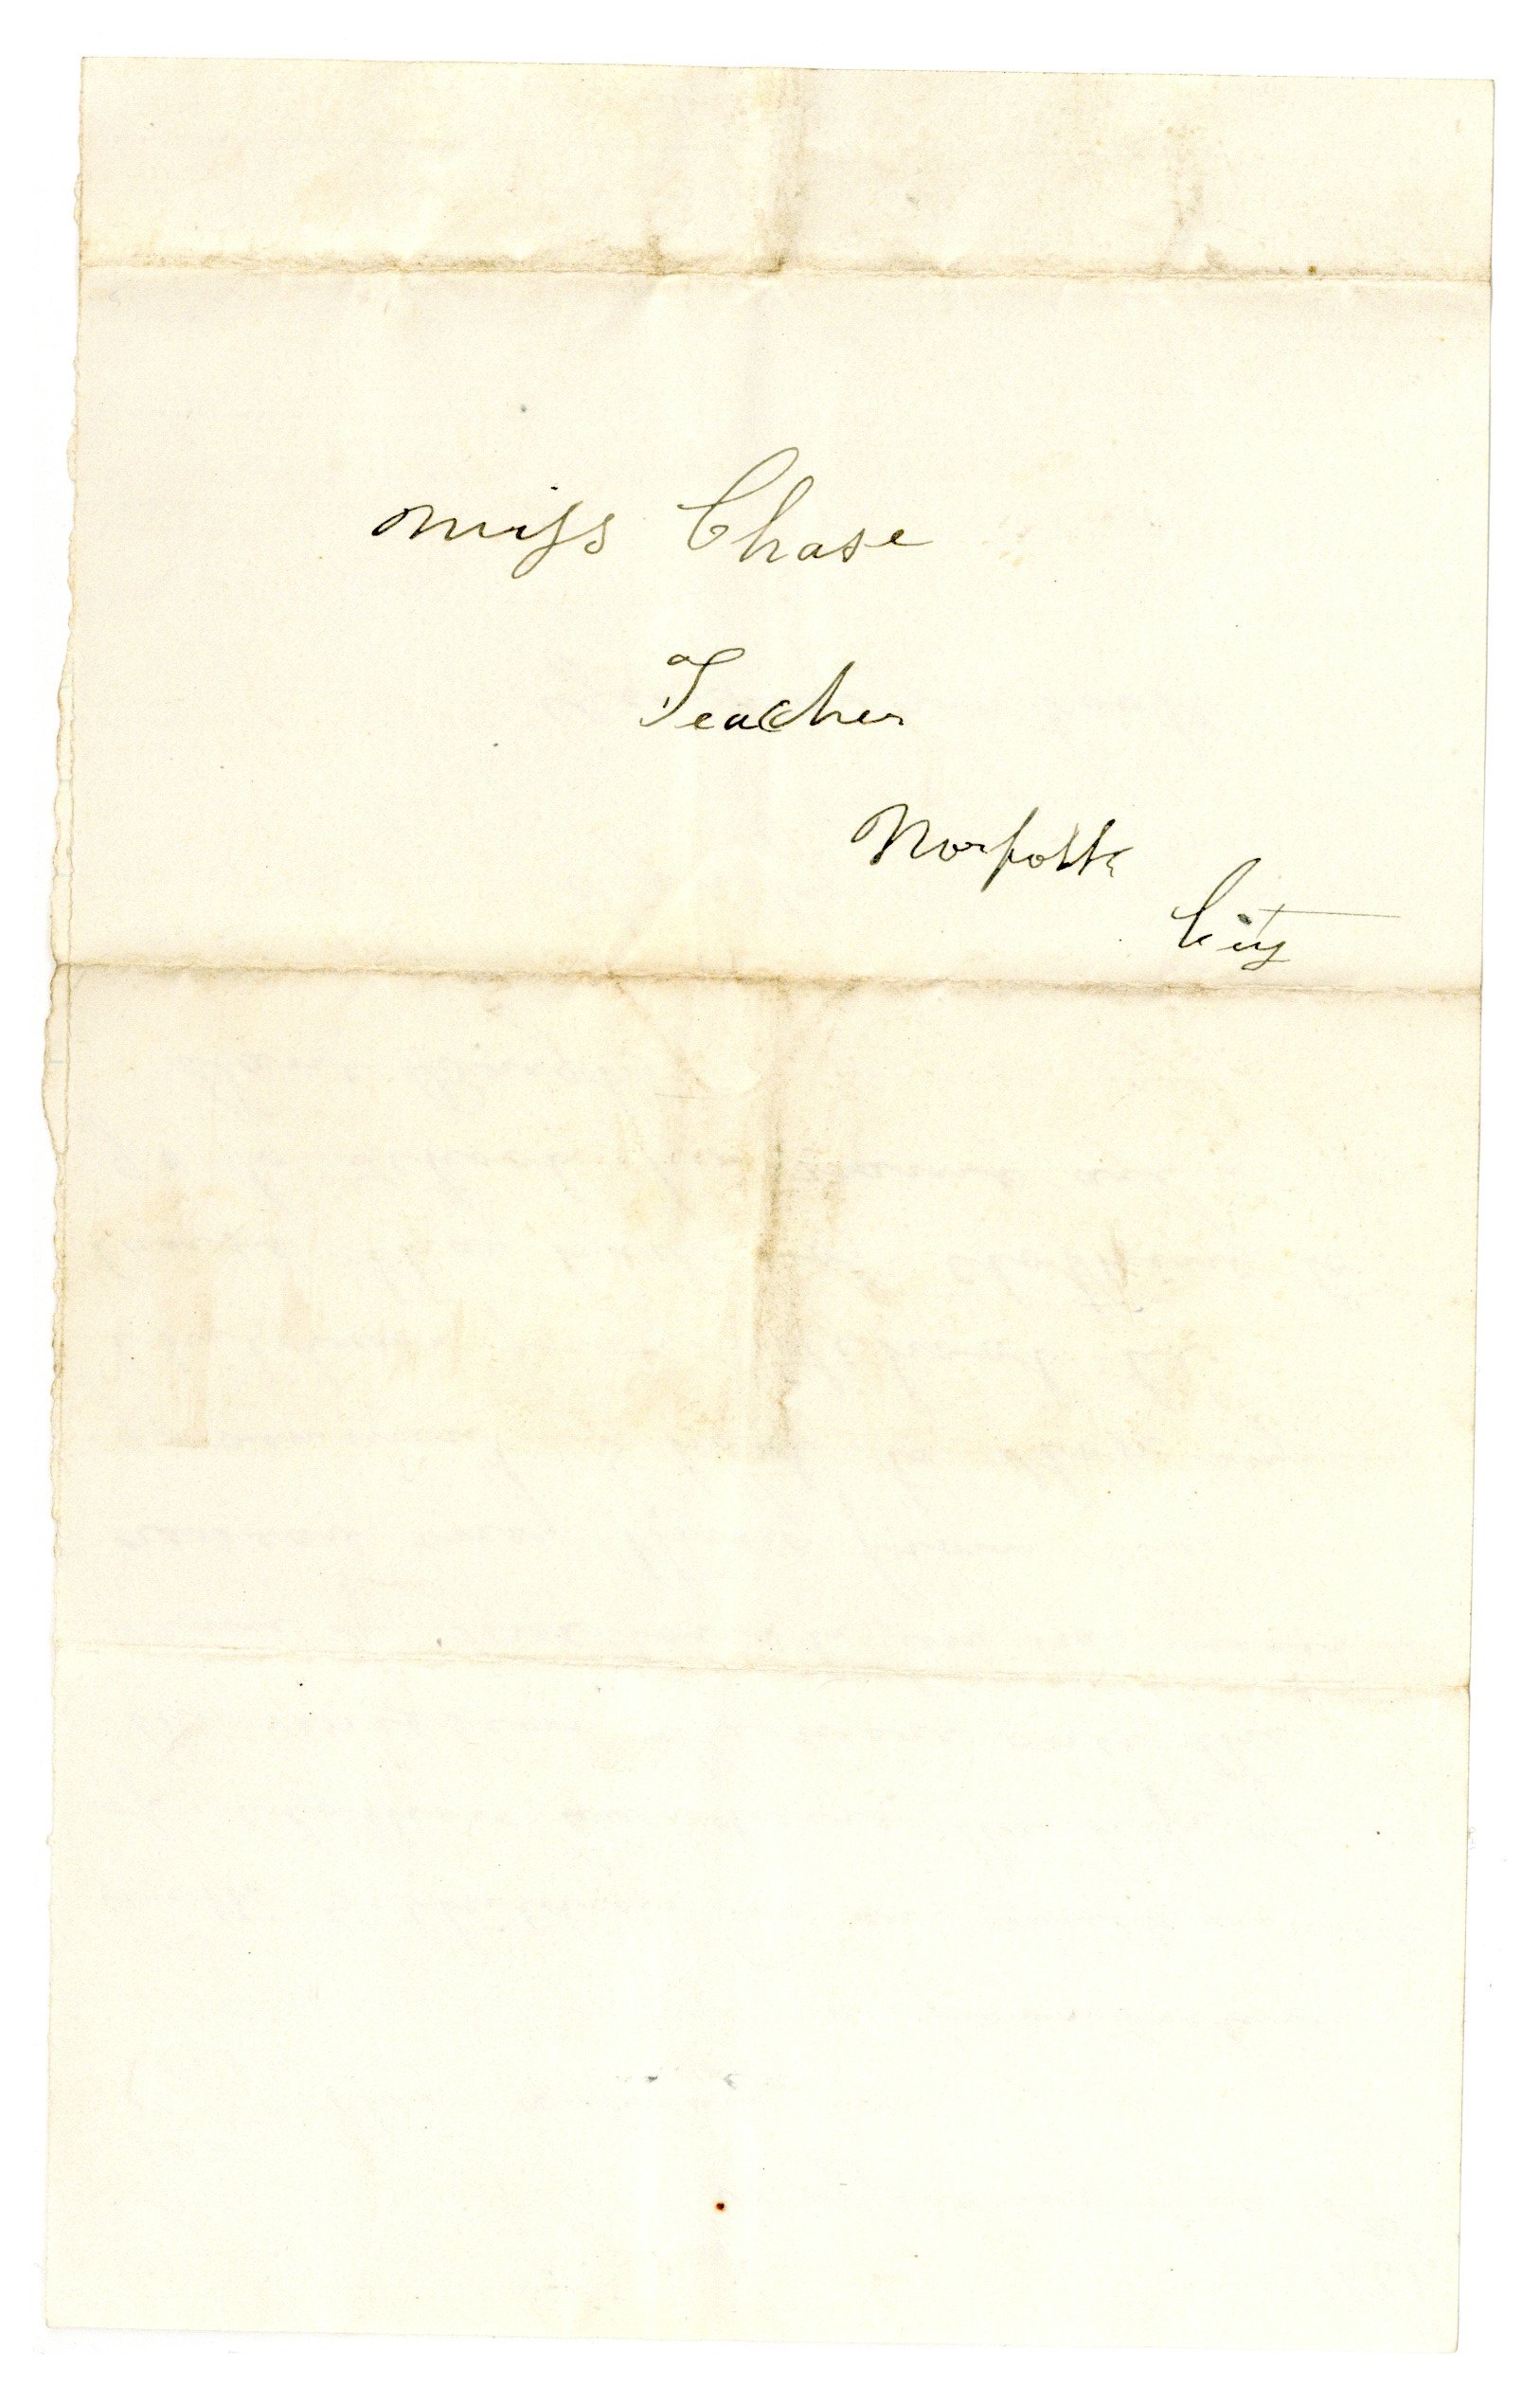 Miss Chase
Teacher
Norfolk
City